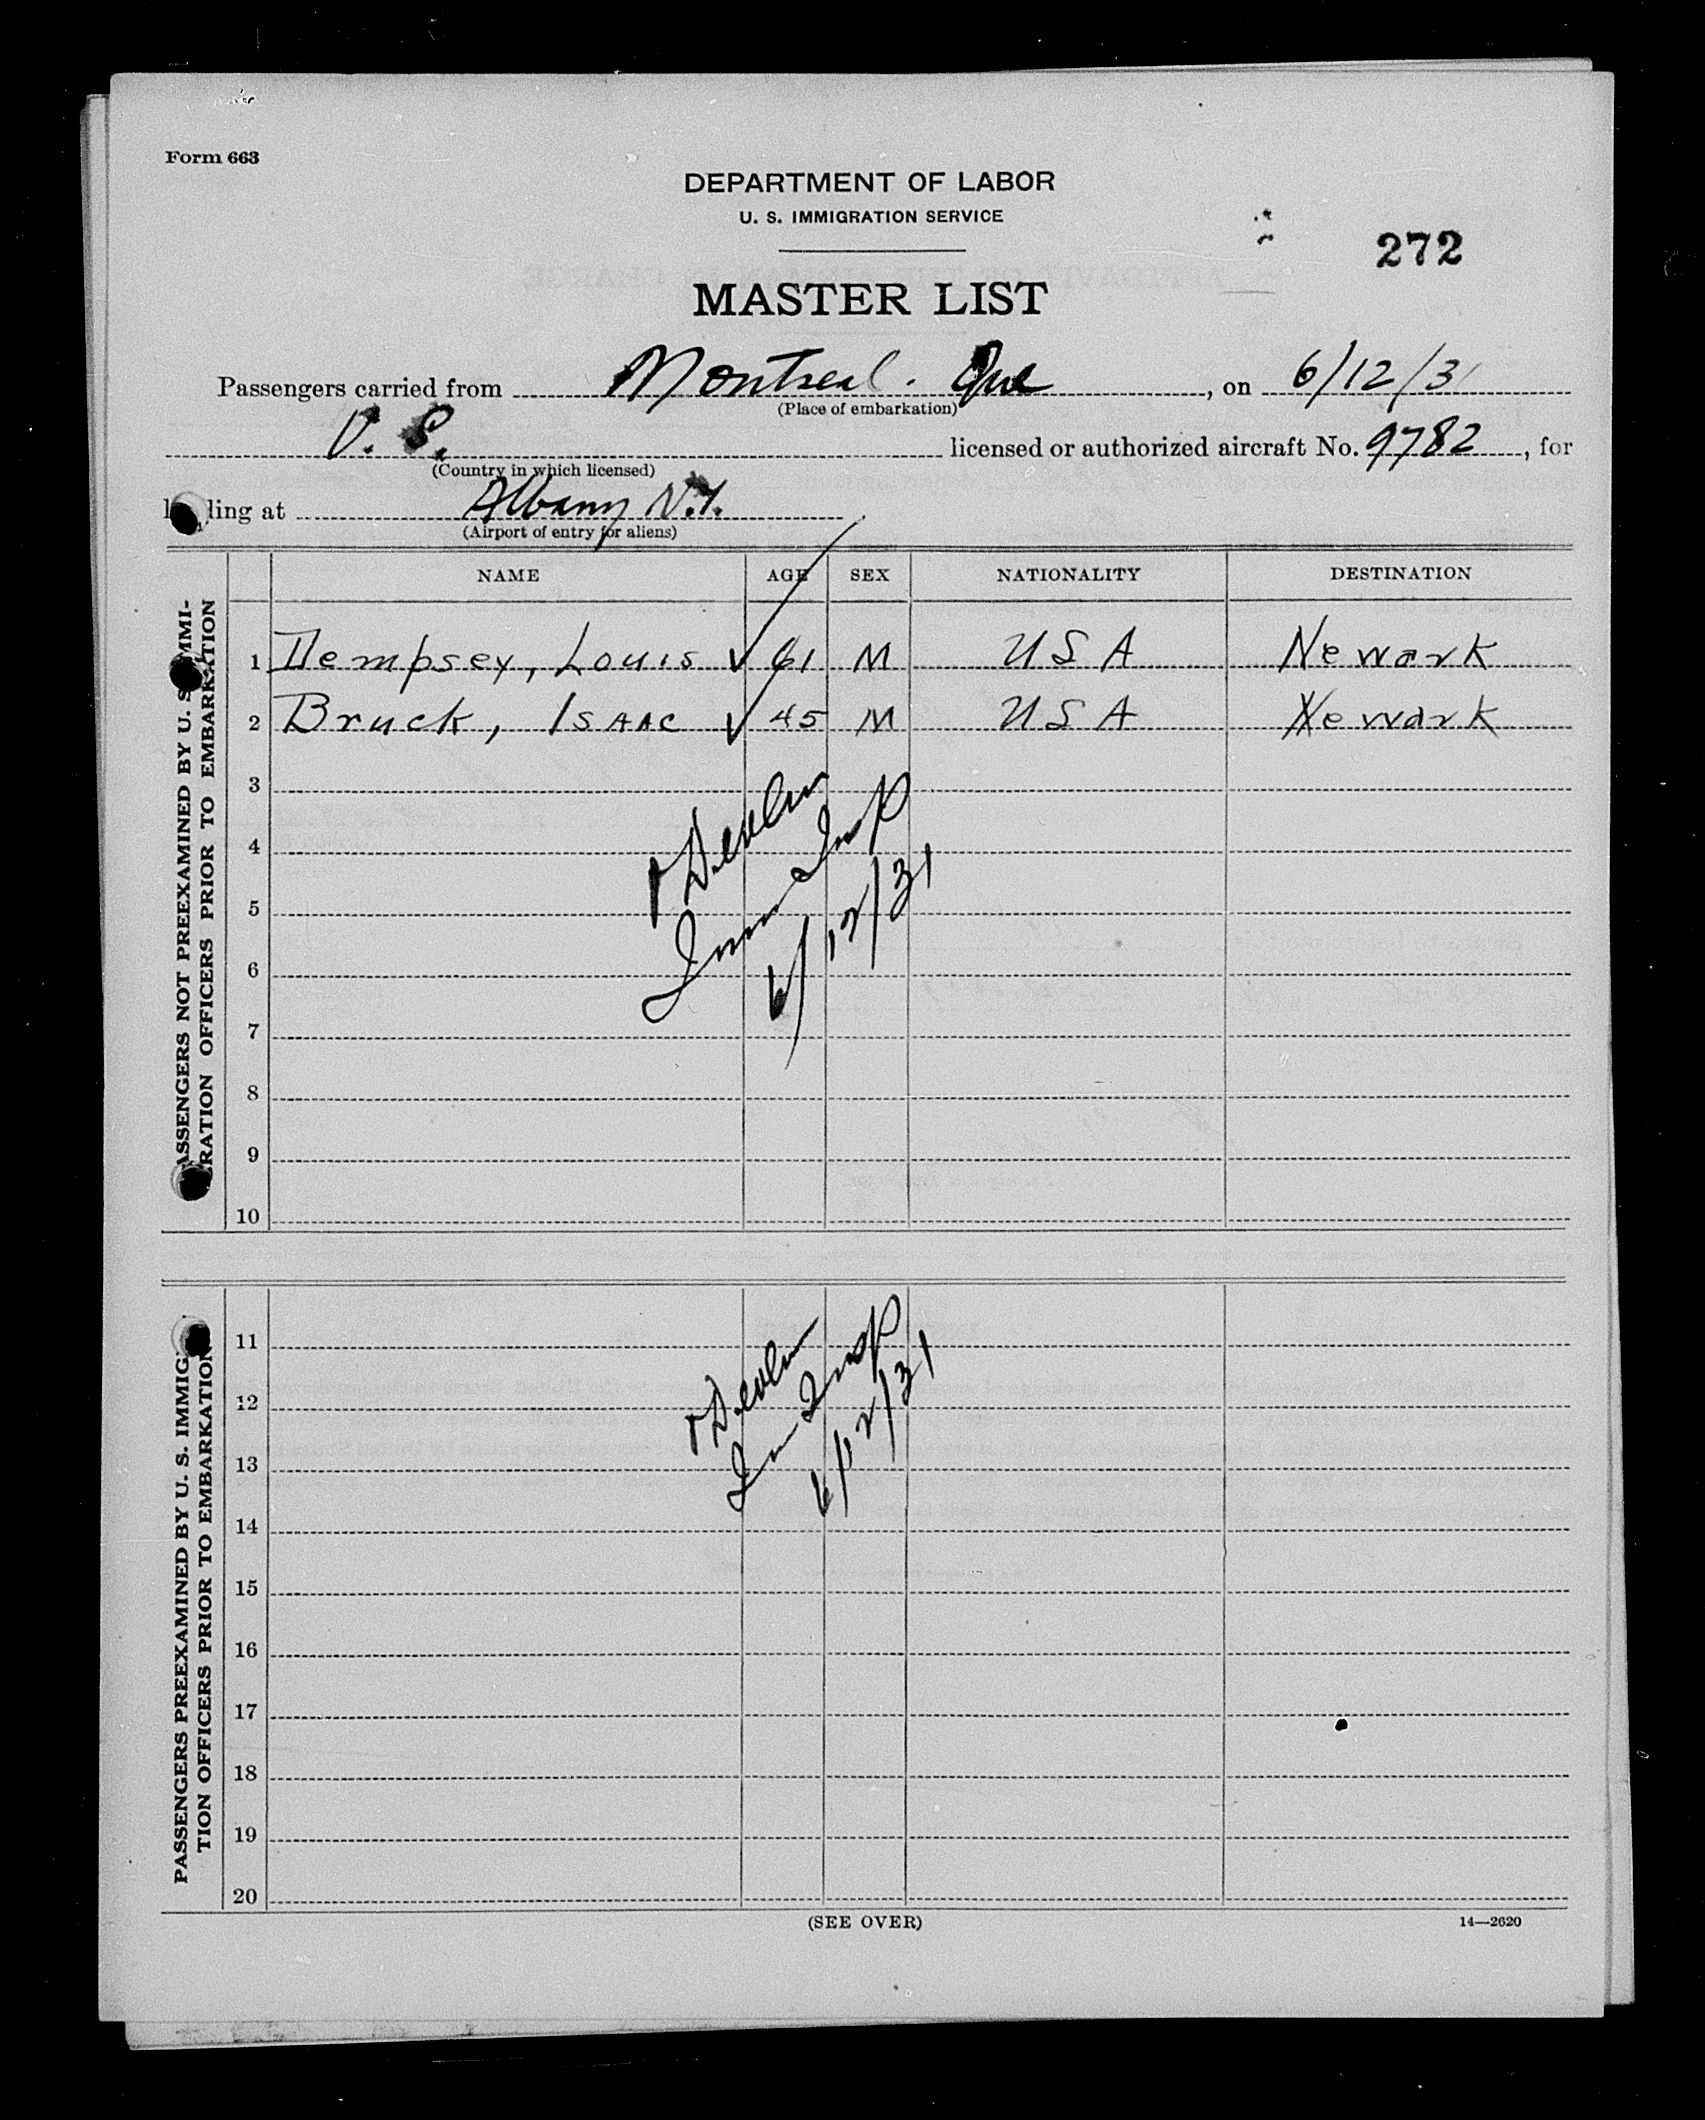 Form 663
DEPARTMENT OF LABOR
U. S. IMMIGRATION SERVICE
272
MASTER LIST
Passengers carried from Montreal. Que, on 6/12/31
(Place of embarkation)
U. S. licensed or authorized aircraft No. 9782, for
(Country in which licensed)
ling at Albany N.Y.
(Airport of entry for aliens)
NAME AGE SEX NATIONALITY DESTINATION
ASSENGERS NOT PREEXAMINED BY U. S. IMMI-
RATION OFFICERS PRIOR TO EMBARKATION
1 Dempsey, Louis ✓ 61 M USA Newark
2 Bruck, Isaac ✓ 45 M USA Newark
3
4
5
6
7
8
9
10
Devlin
Imm Insp
6/12/31
PASSENGERS PREEXAMINED BY U. S. IMMIG
TION OFFICERS PRIOR TO EMBARKATION
11
12
13
14
15
16
17
18
19
20
Devlin
Im Insp
6/12/31
(SEE OVER)
14—2620